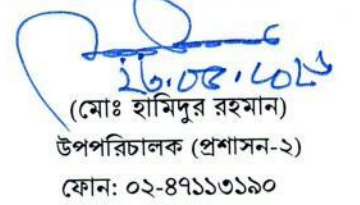 (মোঃ হামিদুর রহমান)
উপপরিচালক (প্রশাসন-২)
ফোন: ০২-৪৭১১৩১৯০